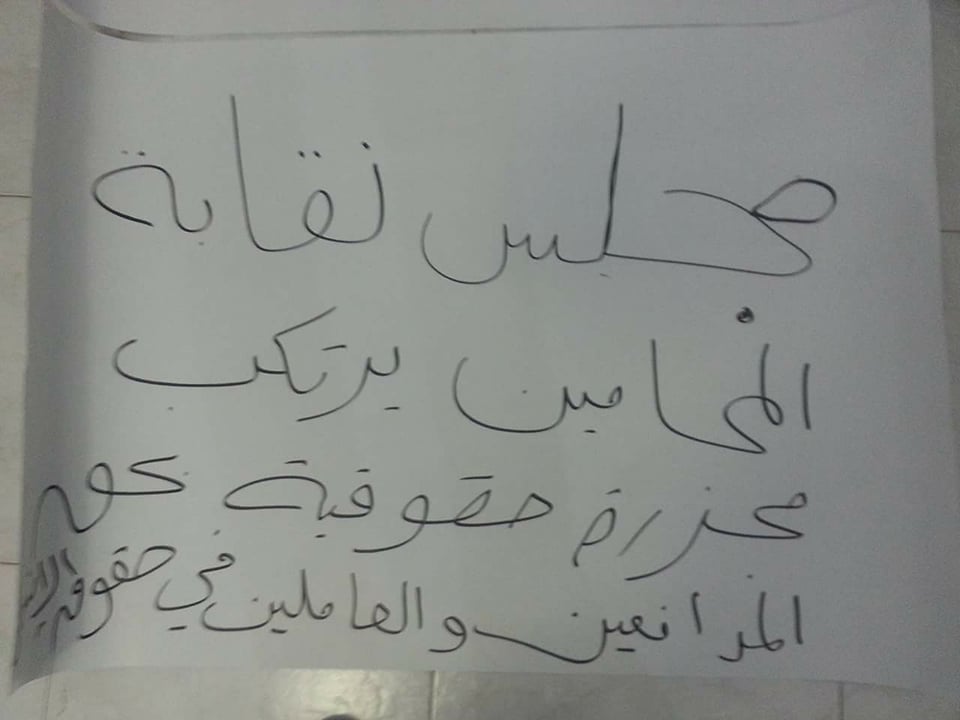 مجلس نقابة
المحامين يرتكب
مجزرة حقوقية بحق
المدافعين والعاملين في حقوق